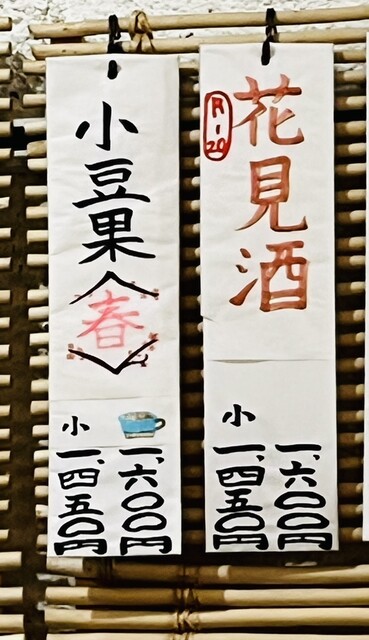 花見酒
R-20
一、六〇〇円
小 一、四五〇円
小豆果〈春〉
一、六〇〇円
小 一、四五〇円